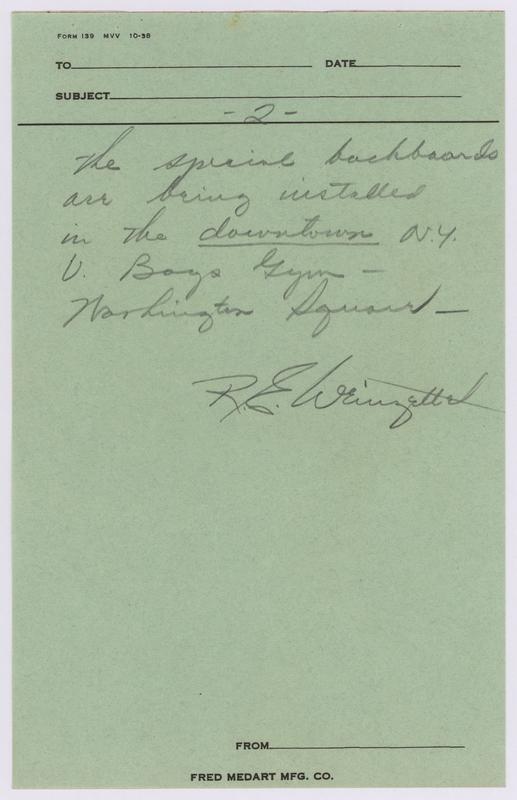 FORM 139 MVV 10-38
TO DATE
SUBJECT
- 2 -
the special backboards
are being installed
in the downtown N.Y.
U. Boys Gym -
Washington Square -
R.E. Weinzettel
FROM
FRED MEDART MFG. CO.